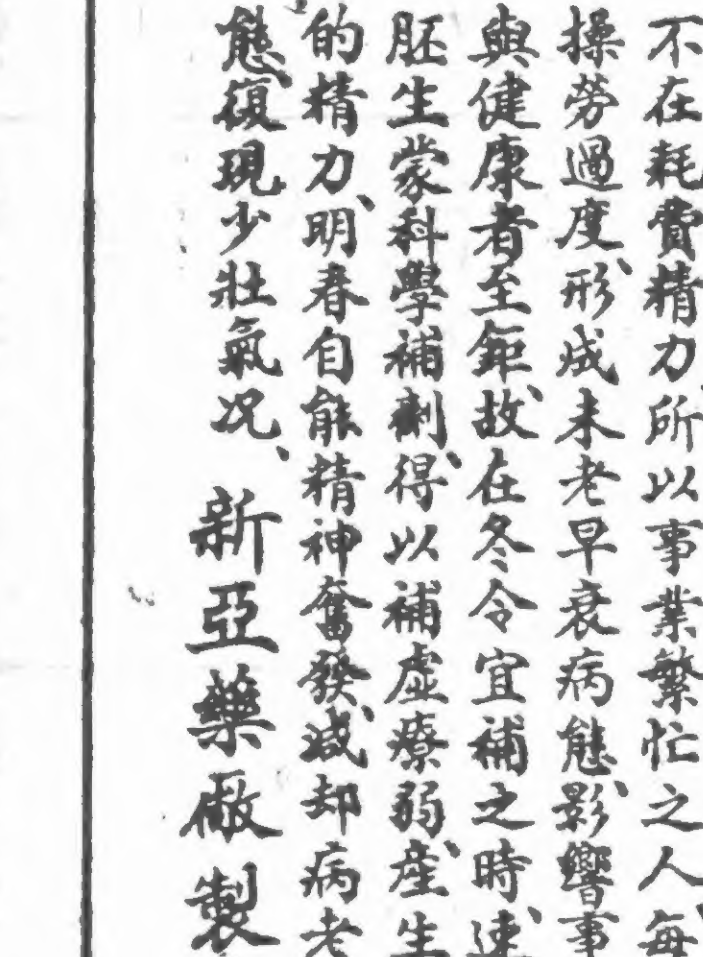 不在耗費精力、所以事業繁忙之人、每
操勞過度、形成未老早衰病態、影響事
與健康者至鉅、故在冬令宜補之時、速
胚生蒙科學補劑、得以補虛療弱、產生
的精力、明春自能精神奮發、減却病老
態、復現少壯氣况、
新亞藥廠製